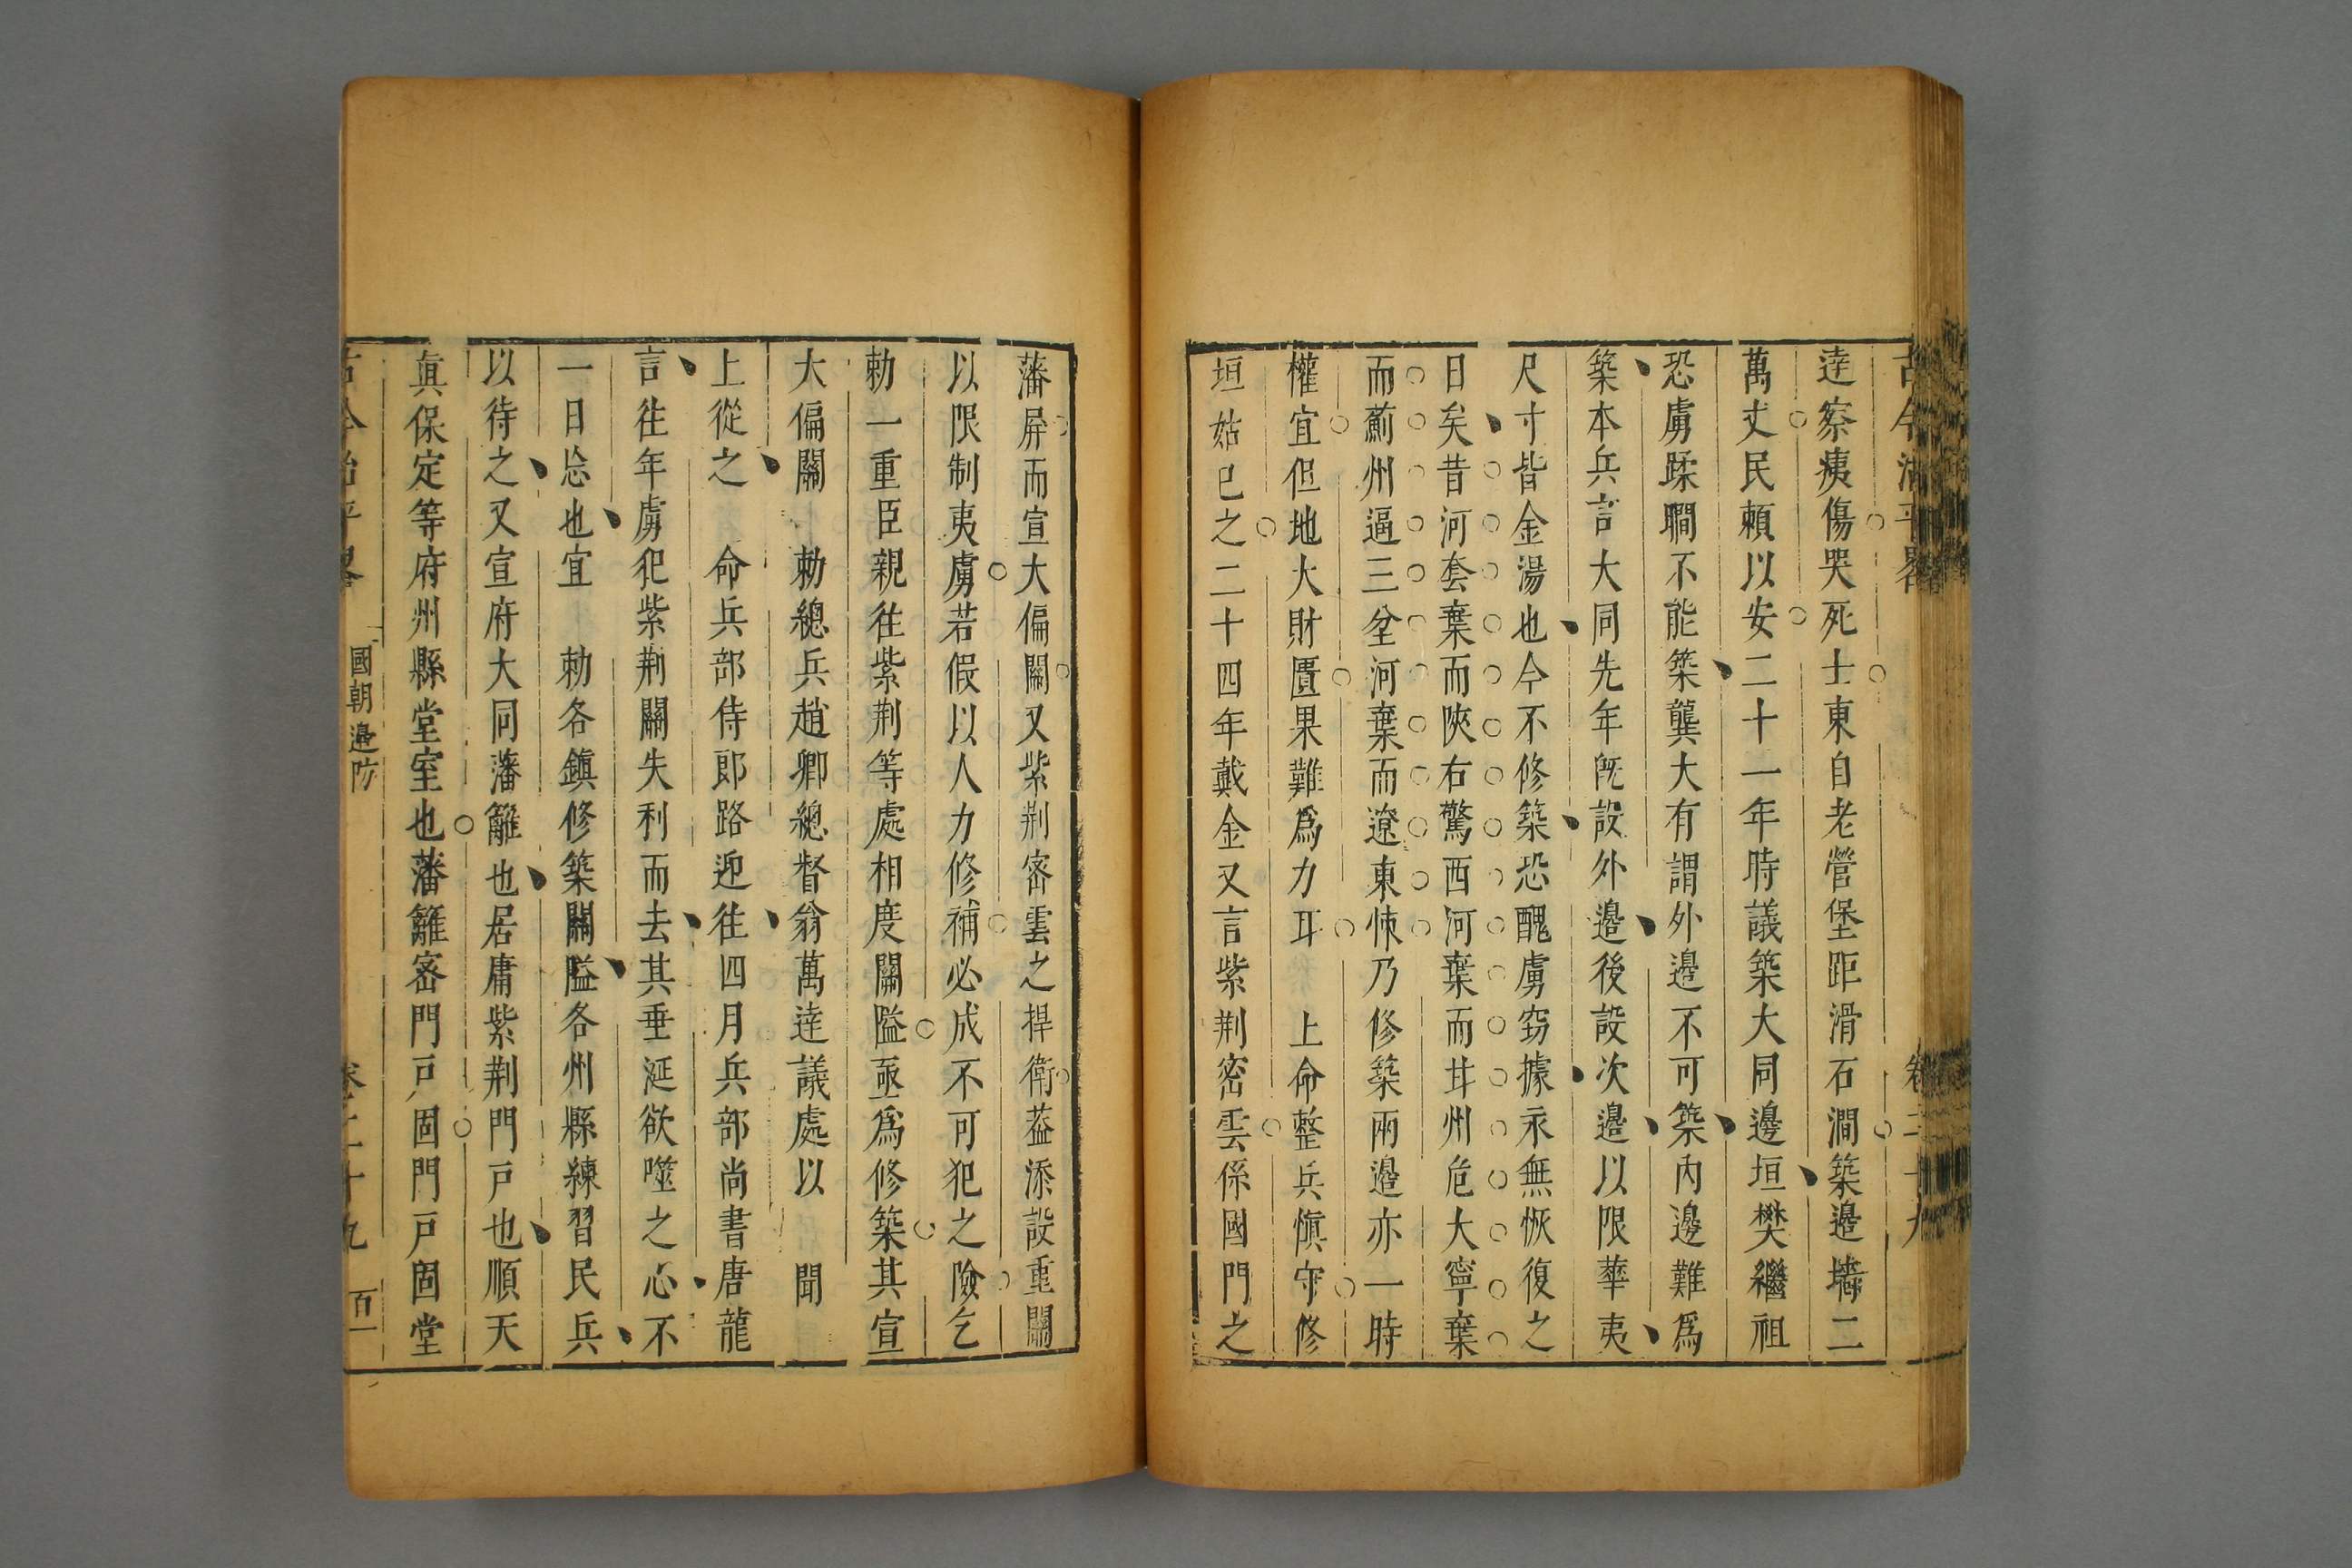 古今治平畧 卷二十九
逹察痍傷哭死士東自老營堡距滑石澗築邉墻二
萬丈民頼以安二十一年時議築大同邉垣樊繼祖
恐虜蹂瞷不能築龔大有謂外邉不可築内邉難爲
築本兵言大同先年旣設外邉後設次邉以限華夷
尺寸皆金湯也今不修築恐醜虜窃據永無恢復之
日矣昔河套棄而陜右驚西河棄而甘州危大寧棄
而薊州逼三坌河棄而遼東悚乃修築兩邉亦一時
權宜但地大財匱果難爲力耳 上命整兵愼守修
垣姑已之二十四年戴金又言紫荆密雲係國門之
藩屏而宣大偏關又紫荆密雲之捍衛葢添設重關
以限制夷虜若假以人力修補必成不可犯之險乞
勅一重臣親徃紫荆等處相度關隘亟爲修築其宣
大偏關 勅緫兵趙卿緫督翁萬逹議處以 聞
上從之 命兵部侍郎路迎徃四月兵部尚書唐龍
言徃年虜犯紫荆關失利而去其垂涎欲噬之心不
一日忘也宜 勅各鎮修築關隘各州縣練習民兵
以待之又宣府大同藩籬也居庸紫荆門戸也順天
眞保定等府州縣堂室也藩籬密門戸固門戸固堂
古今治平畧 國朝邉防 卷二十九 百一